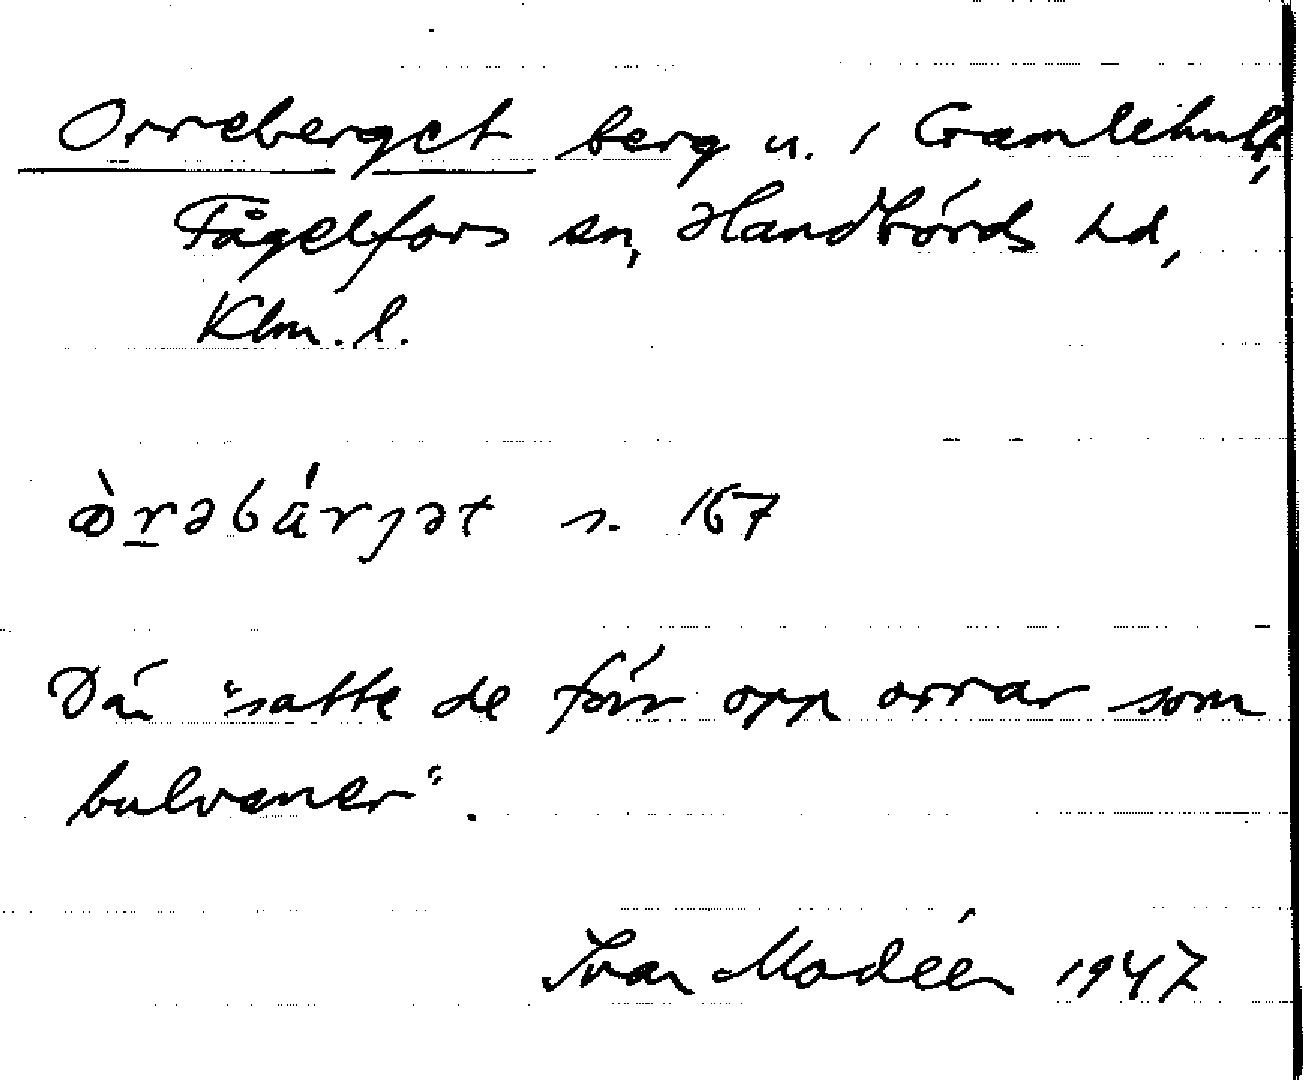 Orreberget berg n. i Gamlehult,
Fågelfors sn, Handbörds hd,
Klm. l.
òrəbárjət s. 167
Där "satte de förr opp orrar som
bulvaner".
Ivar Modéer 1947